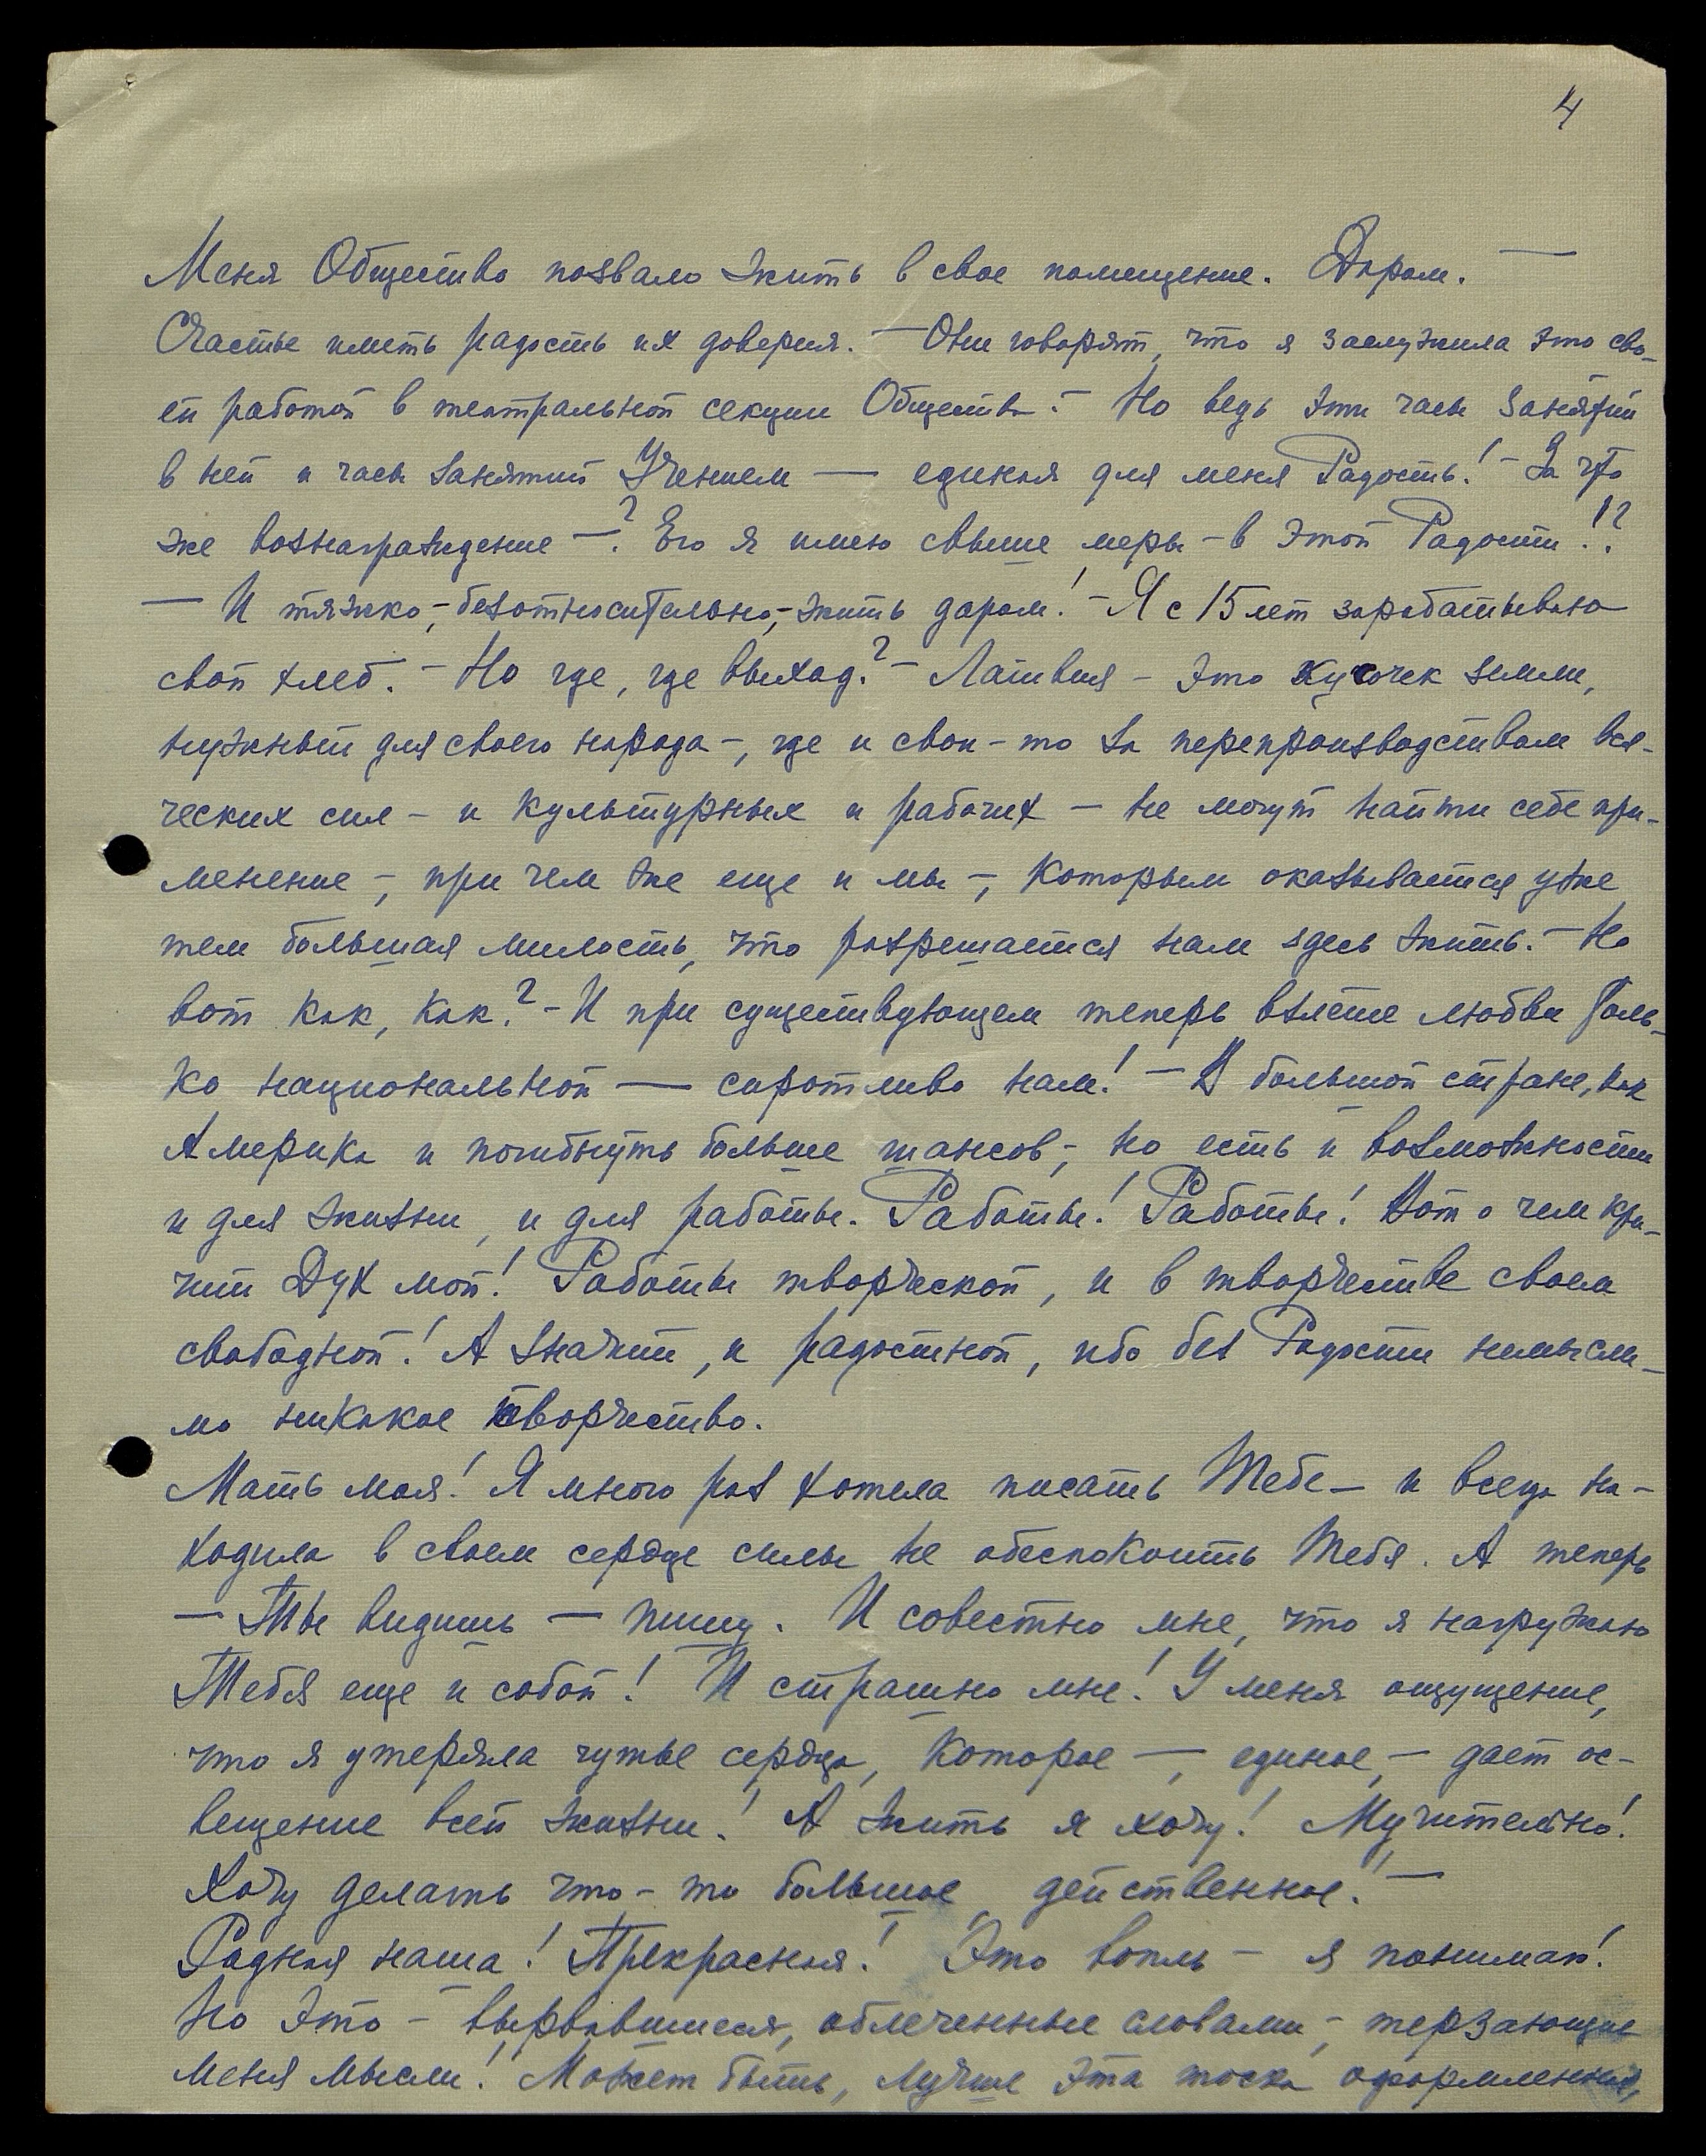 4
Меня Общество позвало жить в свое помещение. Даром. —
Счастье иметь радость их доверия. — Они говорят, что я заслужила это сво-
ей работой в театральной секции Общества. — Но ведь эти часы занятий
в ней и часы занятий Учением — единая для меня Радость! — За что
же вознаграждение —? Его я имею свыше меры — в этой Радости!?
— И тяжко, — безотносительно, — жить даром! — Я с 15 лет зарабатываю
свой хлеб. — Но где, где выход? — Латвия — это кусочек земли,
нужный для своего народа —, где и свои-то за перепроизводством вся-
ческих сил — и культурных и рабочих — не могут найти себе при-
менение —, при чем же еще и мы —, которым оказывается уже
тем большая милость, что разрешается нам здесь жить. — Но
вот как, как? — И при существующем теперь взлёте любви толь-
ко национальной — сиротливо нам! — В большой стране, как
Америка и погибнуть больше шансов —, но есть и возможности
и для жизни, и для работы. Работы! Работы! Вот о чем кри-
чит Дух мой! Работы творческой, и в творчестве своем
свободной! А значит, и радостной, ибо без Радости немысли-
мо никакое творчество.
Мать моя! Я много раз хотела писать Тебе — и всегда на-
ходила в своем сердце силы не обеспокоить Тебя. А теперь
— Ты видишь — пишу. И совестно мне, что я нагружаю
Тебя еще и собой! И страшно мне! У меня ощущение,
что я утеряла чутье сердца, которое —, единое, — дает ос-
вещение всей жизни! А жить я хочу! Мучительно!
Хочу делать что-то большое действенное! —
Родная наша! Прекрасная! Это вопль — я понимаю!
Но это — вырвавшиеся, облеченные словами — терзающие
меня мысли! Может быть, лучше эта тоска оформленная,